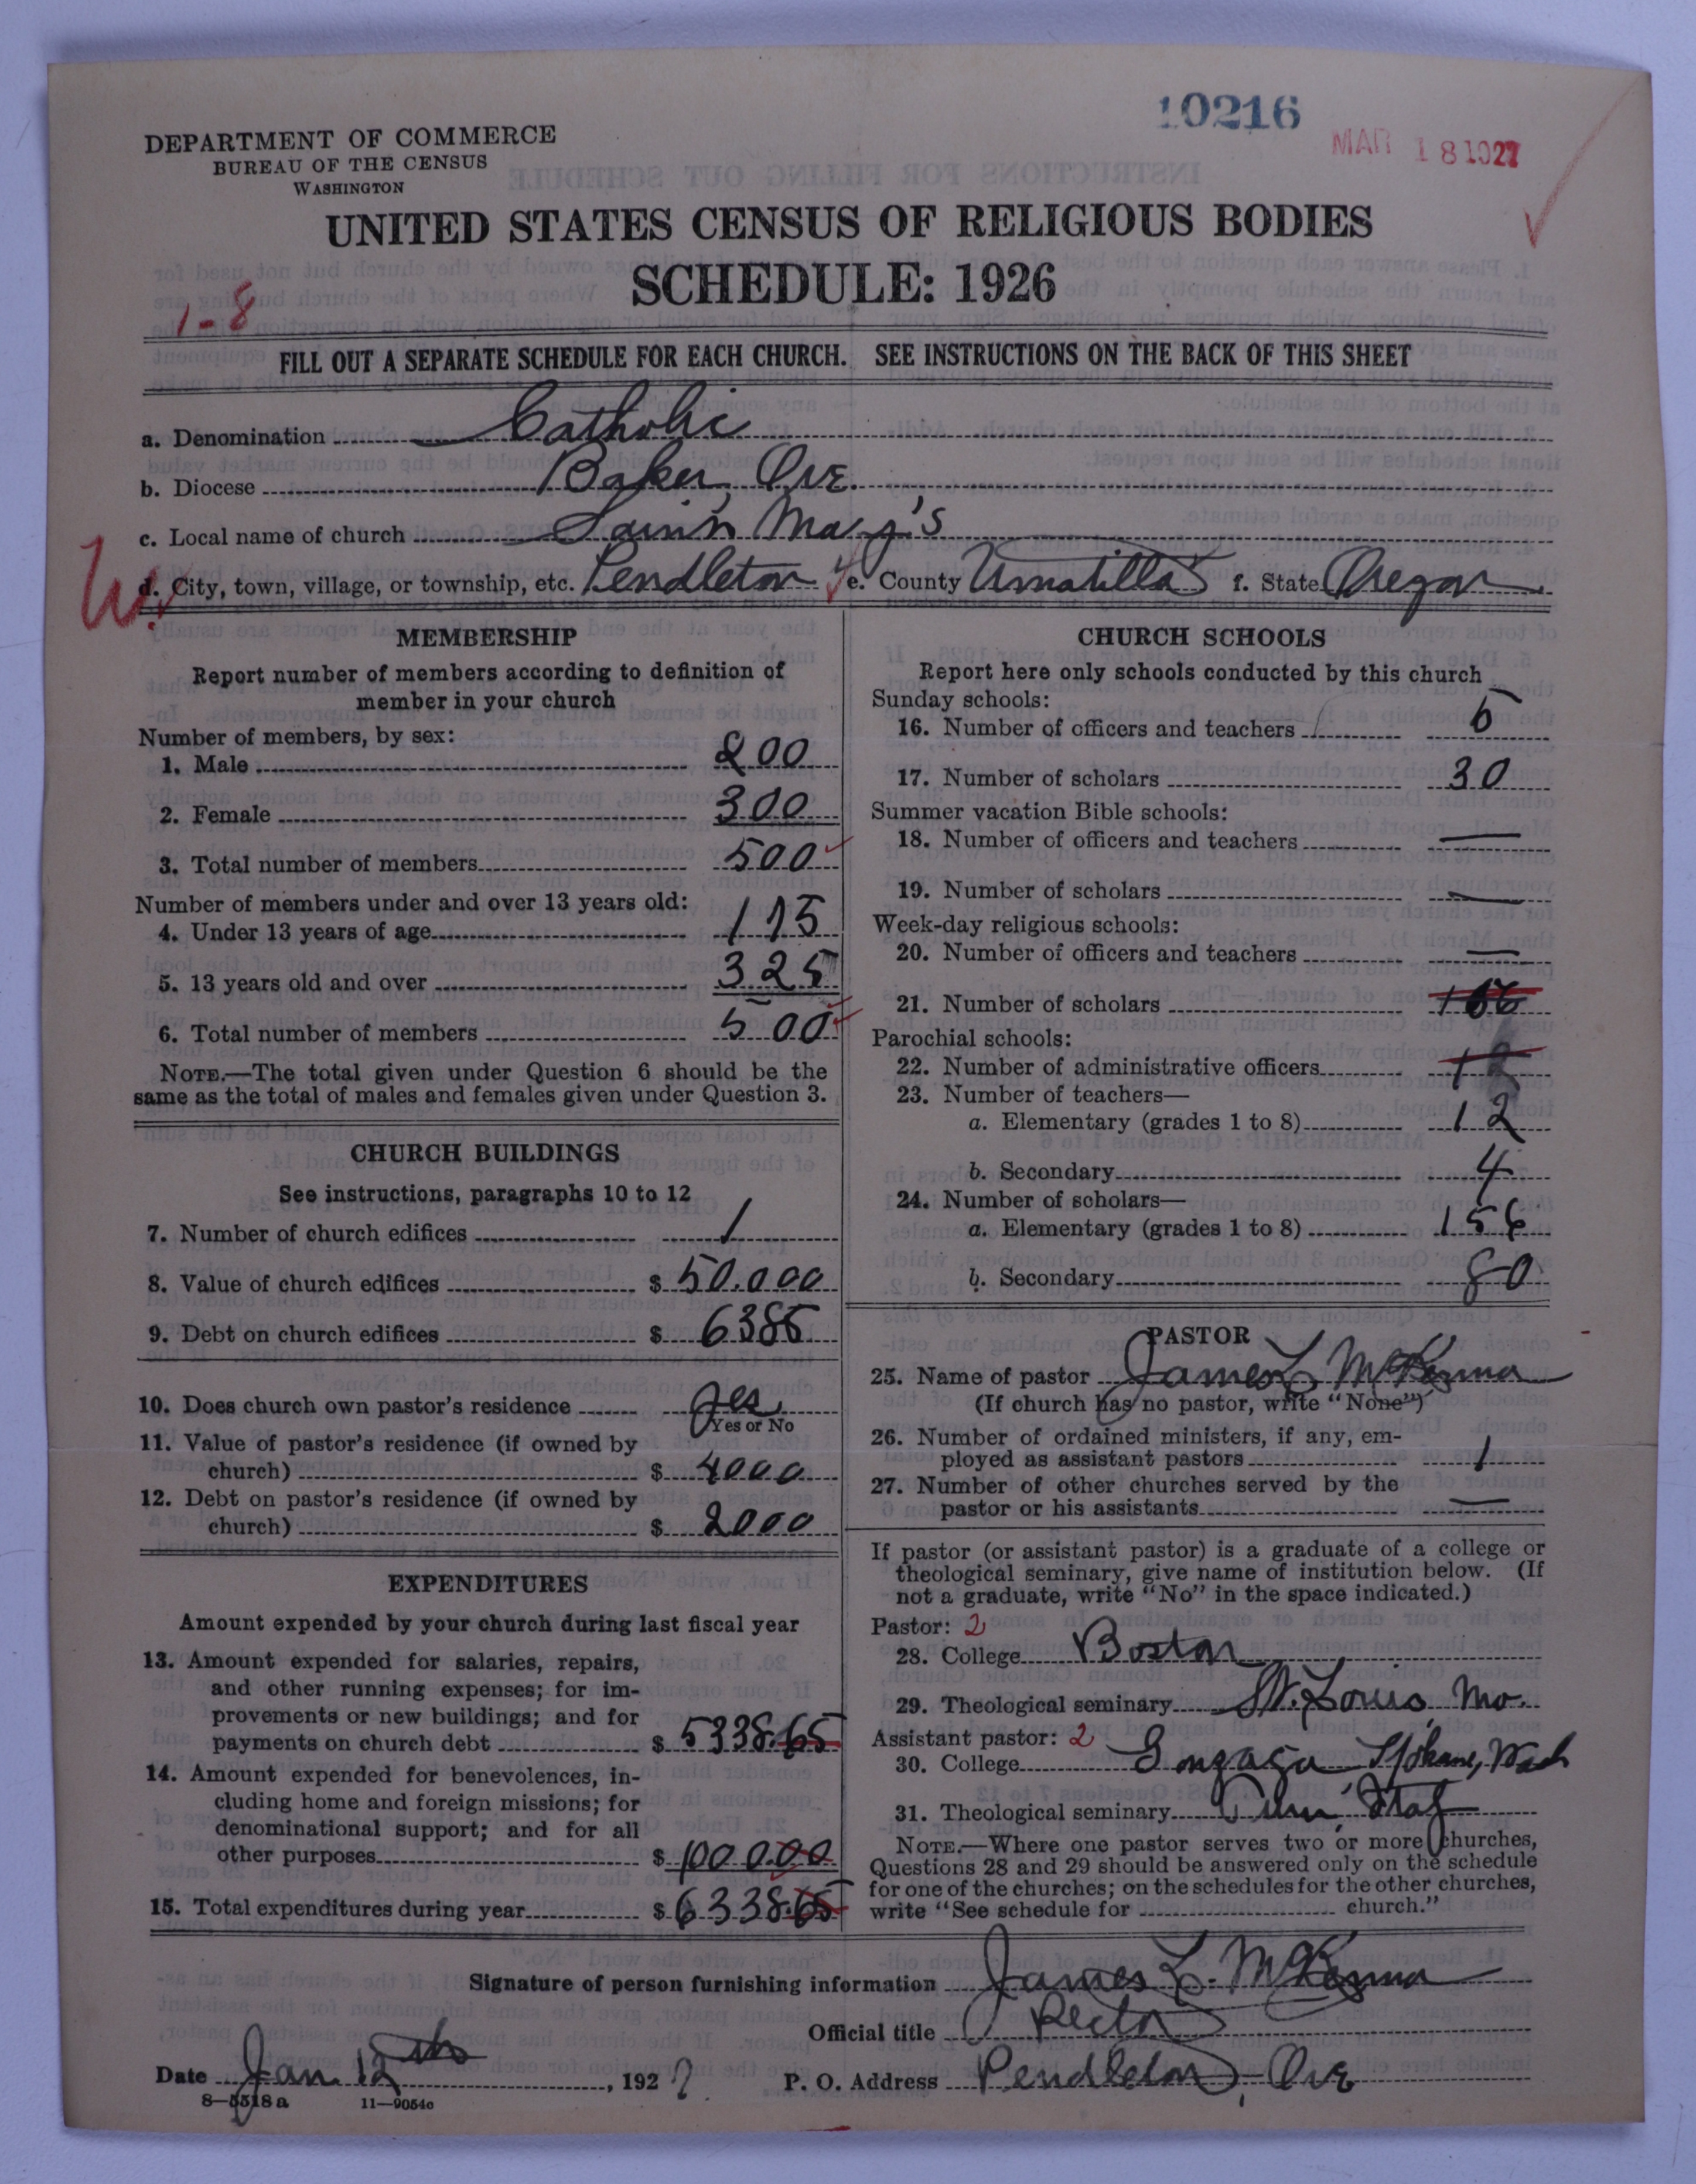 10216
MAR 18 1927
DEPARTMENT OF COMMERCE
BUREAU OF THE CENSUS
WASHINGTON
UNITED STATES CENSUS OF RELIGIOUS BODIES
SCHEDULE: 1926
1-8
FILL OUT A SEPARATE SCHEDULE FOR EACH CHURCH. SEE INSTRUCTIONS ON THE BACK OF THIS SHEET
a. Denomination Catholic
b. Diocese Baker, Ore.
c. Local name of church Saint Mary's
W.
d. City, town, village, or township, etc. Pendleton e. County Umatilla f. State Oregon
MEMBERSHIP
Report number of members according to definition of
member in your church
Number of members, by sex:
1. Male 200
2. Female 300
3. Total number of members 500
Number of members under and over 13 years old:
4. Under 13 years of age 175
5. 13 years old and over 325
6. Total number of members 500
NOTE.—The total given under Question 6 should be the
same as the total of males and females given under Question 3.
CHURCH BUILDINGS
See instructions, paragraphs 10 to 12
7. Number of church edifices 1
8. Value of church edifices $ 50.000
9. Debt on church edifices $ 6385
10. Does church own pastor's residence yes
Yes or No
11. Value of pastor's residence (if owned by
church) $ 4000
12. Debt on pastor's residence (if owned by
church) $ 2000
EXPENDITURES
Amount expended by your church during last fiscal year
13. Amount expended for salaries, repairs,
and other running expenses; for im-
provements or new buildings; and for
payments on church debt $ 5338.65
14. Amount expended for benevolences, in-
cluding home and foreign missions; for
denominational support; and for all
other purposes $ 1000.00
15. Total expenditures during year $ 6338.65
CHURCH SCHOOLS
Report here only schools conducted by this church
Sunday schools:
16. Number of officers and teachers 5
17. Number of scholars 30
Summer vacation Bible schools:
18. Number of officers and teachers —
19. Number of scholars —
Week-day religious schools:
20. Number of officers and teachers —
21. Number of scholars
Parochial schools:
22. Number of administrative officers 12
23. Number of teachers—
a. Elementary (grades 1 to 8) 12
b. Secondary 4
24. Number of scholars—
a. Elementary (grades 1 to 8) 156
b. Secondary 80
PASTOR
25. Name of pastor James L McKenna
(If church has no pastor, write "None")
26. Number of ordained ministers, if any, em-
ployed as assistant pastors 1
27. Number of other churches served by the
pastor or his assistants —
If pastor (or assistant pastor) is a graduate of a college or
theological seminary, give name of institution below. (If
not a graduate, write "No" in the space indicated.)
Pastor: 2
28. College Boston
29. Theological seminary St. Louis, Mo.
Assistant pastor: 2
30. College Gonzaga Spokane, Wash
31. Theological seminary
NOTE.—Where one pastor serves two or more churches,
Questions 28 and 29 should be answered only on the schedule
for one of the churches; on the schedules for the other churches,
write "See schedule for church."
Signature of person furnishing information James L. McKenna
Official title Rector
Date Jan. 12th, 1927
P. O. Address Pendleton, Ore
8—5518a 11—9054o